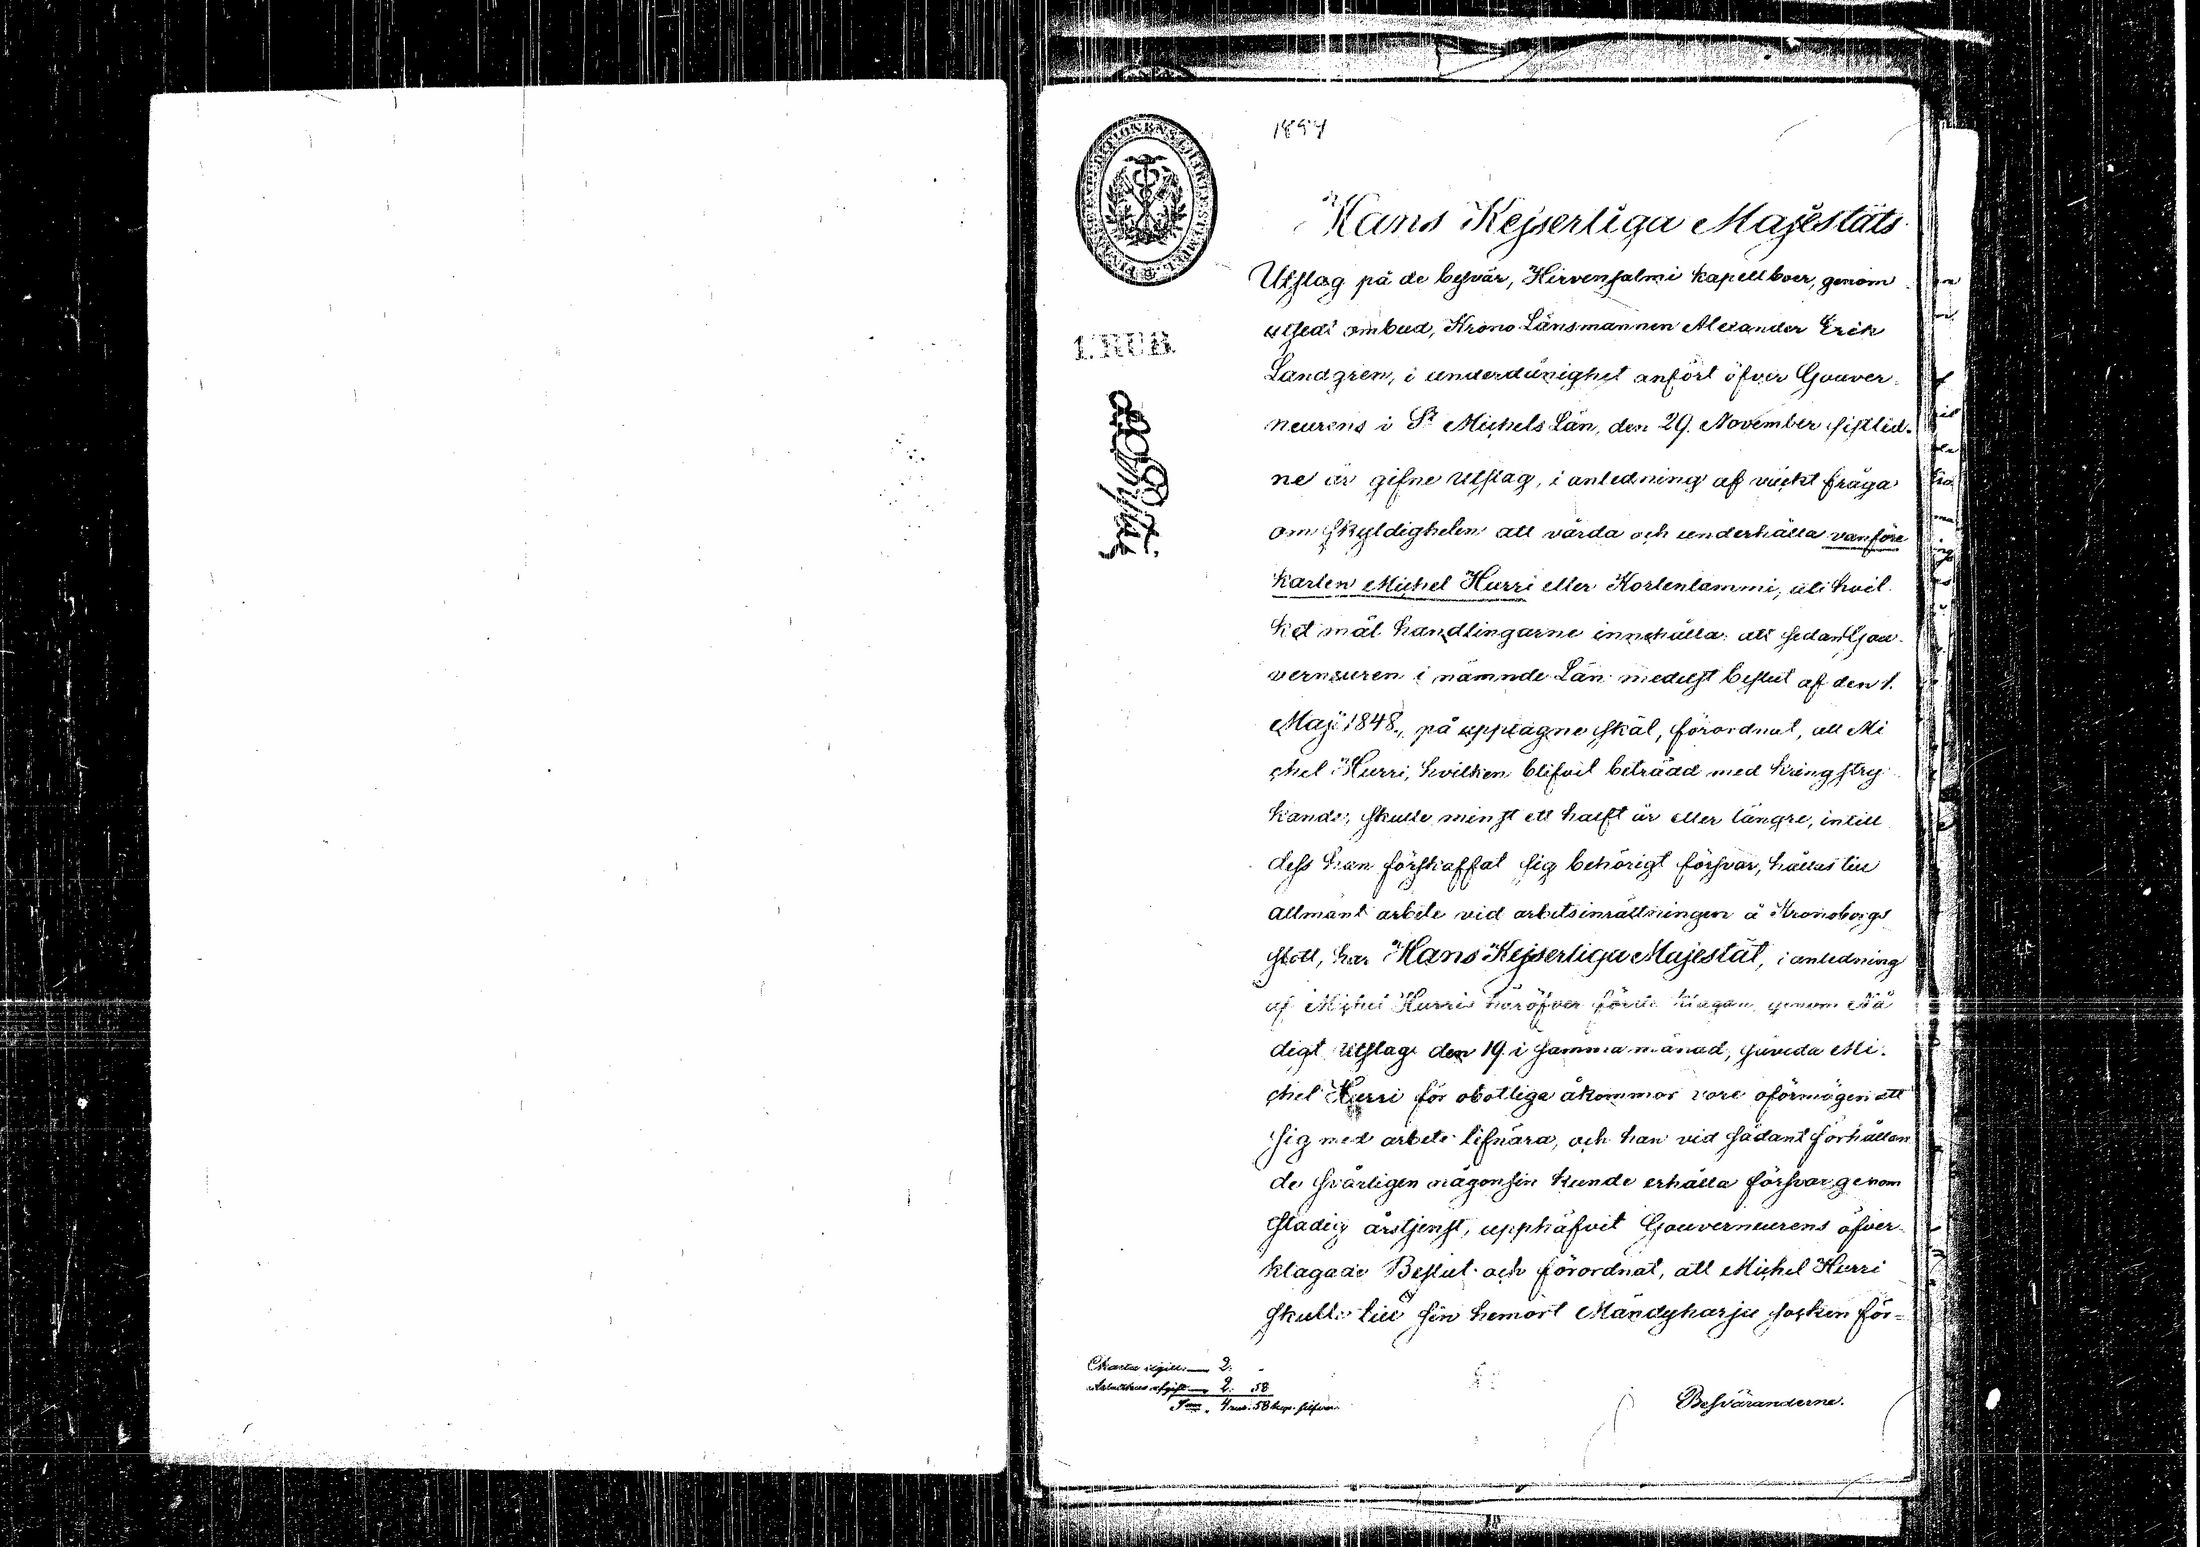 1854
Hans Kejserliga Majestäts
Utslag på de besvär, Hirvensalmi kapellboer, genom
utsedt ombud, Krono Länsmannen Alexander Erik
Landgren, i underdånighet anfört öfver Gouver-
neurens i St Michels Län, den 29. November sistlid-
ne år gifne Utslag, i anledning af väckt fråga
om skyldigheten att vårda och underhålla vanföre
karlen Michel Hurri eller Kortenlammi, uti hvil-
ket mål handlingarne innehålla: att sedan Gou-
verneuren i nämnde Län medelst beslut af den 1.
Maji 1848., på upptagne skäl, förordnat, att Mi
chel Hurri, hvilken blifvit beträdd med kringstry-
kande, skulle minst ett halft år eller längre, intill
dess han förskaffat sig behörigt försvar, hållas till
allmänt arbete vid arbetsinrättningen å Kronoborgs
slott, har Hans Kejserliga Majestät, i anledning
af Michel Hurris häröfver förde klagan, genom Nå
digt Utslag den 19. i samma månad, såvida Mi-
chel Hurri för obotliga åkommor vore oförmögen att
sig med arbete lifnära, och han vid sådant förhållan
de svårligen någonsin kunde erhålla försvar genom
stadig årstjenst, upphäfvit Gouverneurens öfver-
klagade Beslut och förordnat, att Michel Hurri
skulle till sin hemort Mändyharju socken för-
Besväranderne.
1. RUB.
Charta sigill: 2. -
2. 58
S:ma 4 rub. 58 kop. silfver.